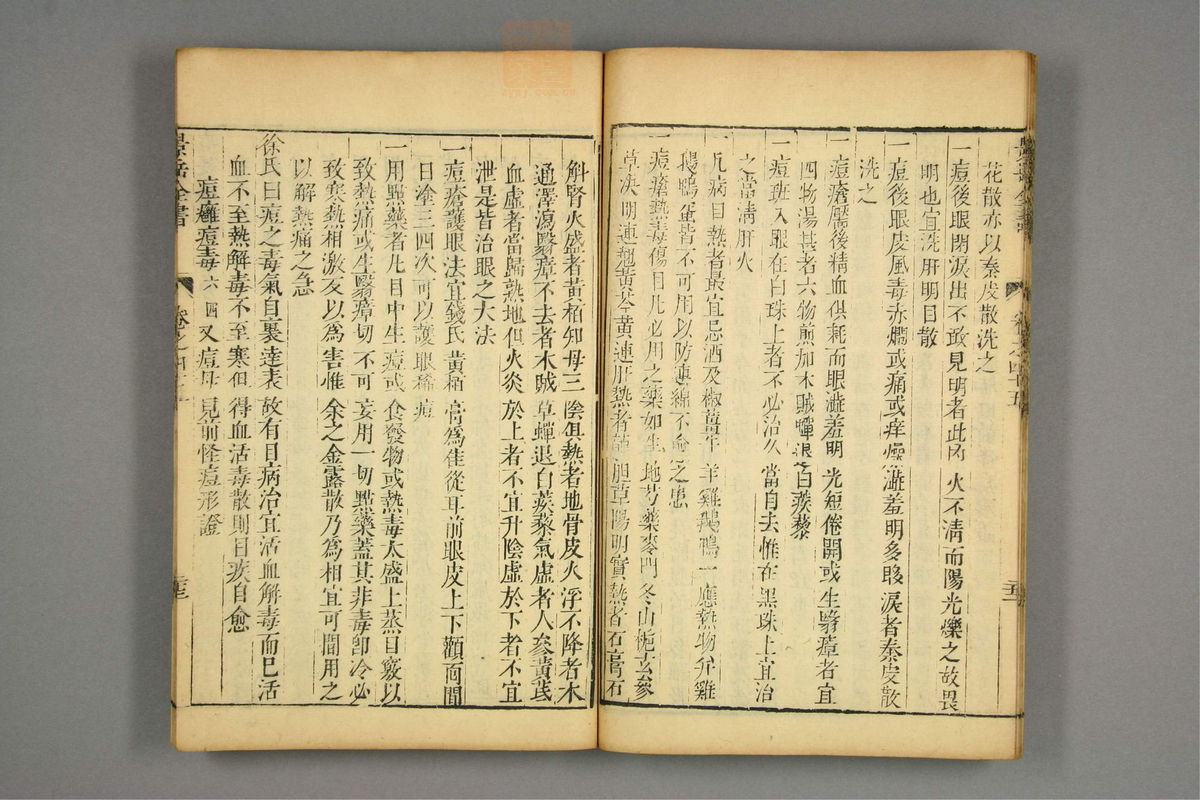 花散亦以秦皮散洗之
一痘後眼閉淚出不敢見明者此內火不清而陽光爍之故畏
明也宜洗肝明目散
一痘後眼皮風毒赤爛或痛或痒燥澀羞明多眵淚者秦皮散
洗之
一痘瘡靨後精血俱耗而眼澀羞明光短倦開或生翳瘴者宜
四物湯甚者六物煎加木賊蟬退白蒺藜
一痘斑入眼在白珠上者不必治久當自去惟在黑珠上宜治
之當清肝火
一凡病目熱者最宜忌酒及椒薑牛羊雞鵝鴨一應熱物弁雞
鵝鴨蛋皆不可用以防連綿不愈之患
一痘瘡熱毒傷目凡必用之藥如生地芍藥麥門冬山梔玄參
草決明連翹黃芩黃連肝熱者龍胆草陽明實熱者石膏石
斛腎火盛者黃栢知母三陰俱熱者地骨皮火浮不降者木
通澤瀉翳瘴不去者木賊草蟬退白蒺藜氣虛者人參黃芪
血虛者當歸熟地但火炎於上者不宜升陰虛於下者不宜
泄是皆治眼之大法
一痘瘡護眼法宜錢氏黃栢膏爲佳從耳前眼皮上下顴面間
日塗三四次可以護眼稀痘
一用點藥者凡目中生痘或食發物或熱毒太盛上蒸目竅以
致熱痛或生翳瘴切不可妄用一切點藥蓋其非毒卽冷必
致寒熱相激反以爲害惟余之金露散乃爲相宜可間用之
以解熱痛之急
徐氏曰痘之毒氣自裏達表故有目病治宜活血解毒而已活
血不至熱解毒不至寒但得血活毒散則目疾自愈
痘癰痘毒六四又痘母見前怪痘形證